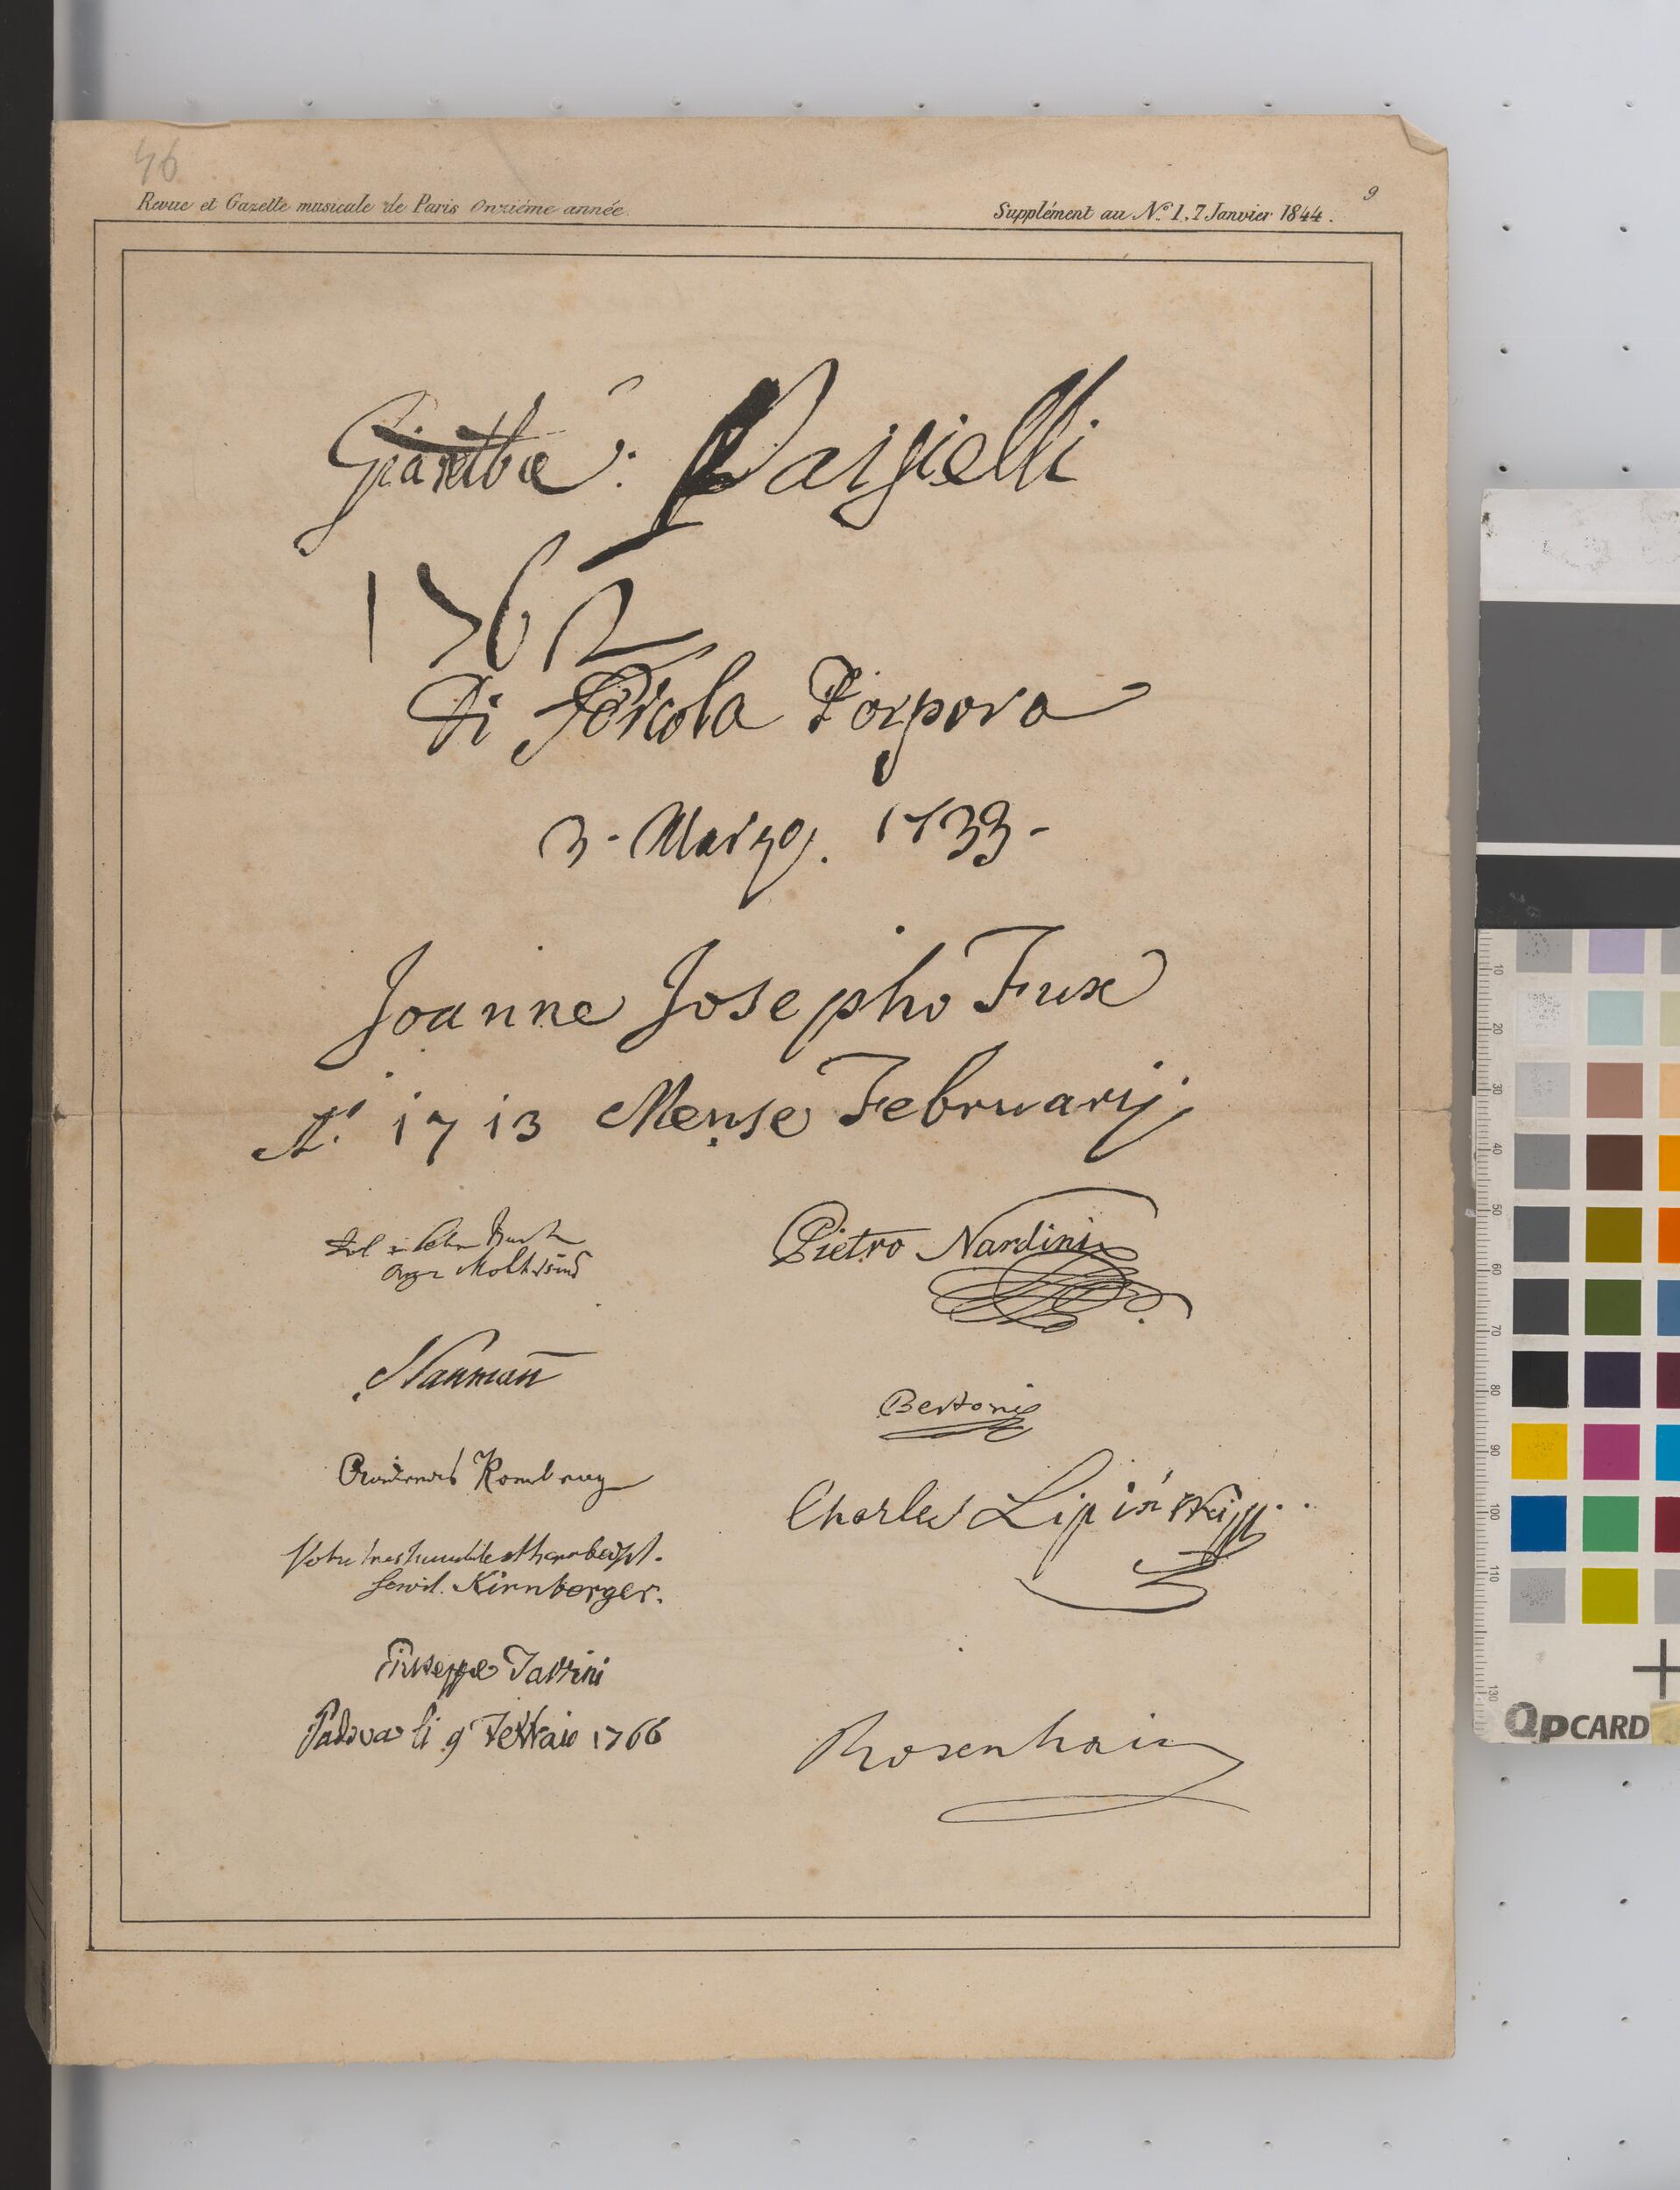 46
Revue et Gazette musicale de Paris Onzième année.
Supplément au N° 1, 7 Janvier 1844.
9
Paisielli
1762
Di Nicola Porpora
3 - Marzo. 1733 -
Joanne Josepho Fux
Aº 1713 Mense Februarij
Pietro Nardini
Naumañ
Bertoni
Romberg
Charles Lipiński
Votre tres humble et
Servit. Kirnberger.
Giuseppe Tartini
Padova li 9 Febraio 1766
Rosenhain
10
20
30
40
50
60
70
80
90
100
110
130
QpCARD